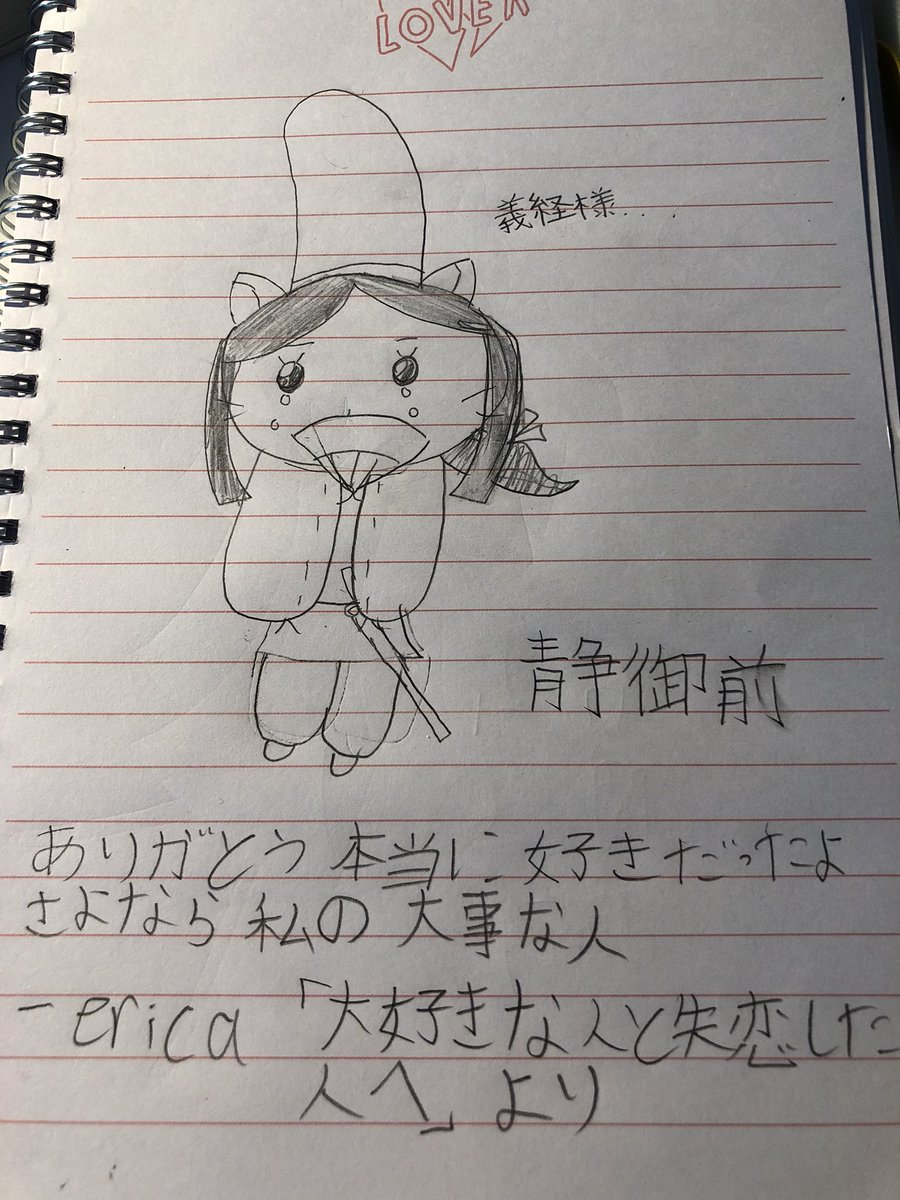 LOVER
義経様....
静御前
ありがとう 本当に 好きだったよ
さよなら 私の 大事な人
－erica 「大好きな人と失恋した
人へ」より